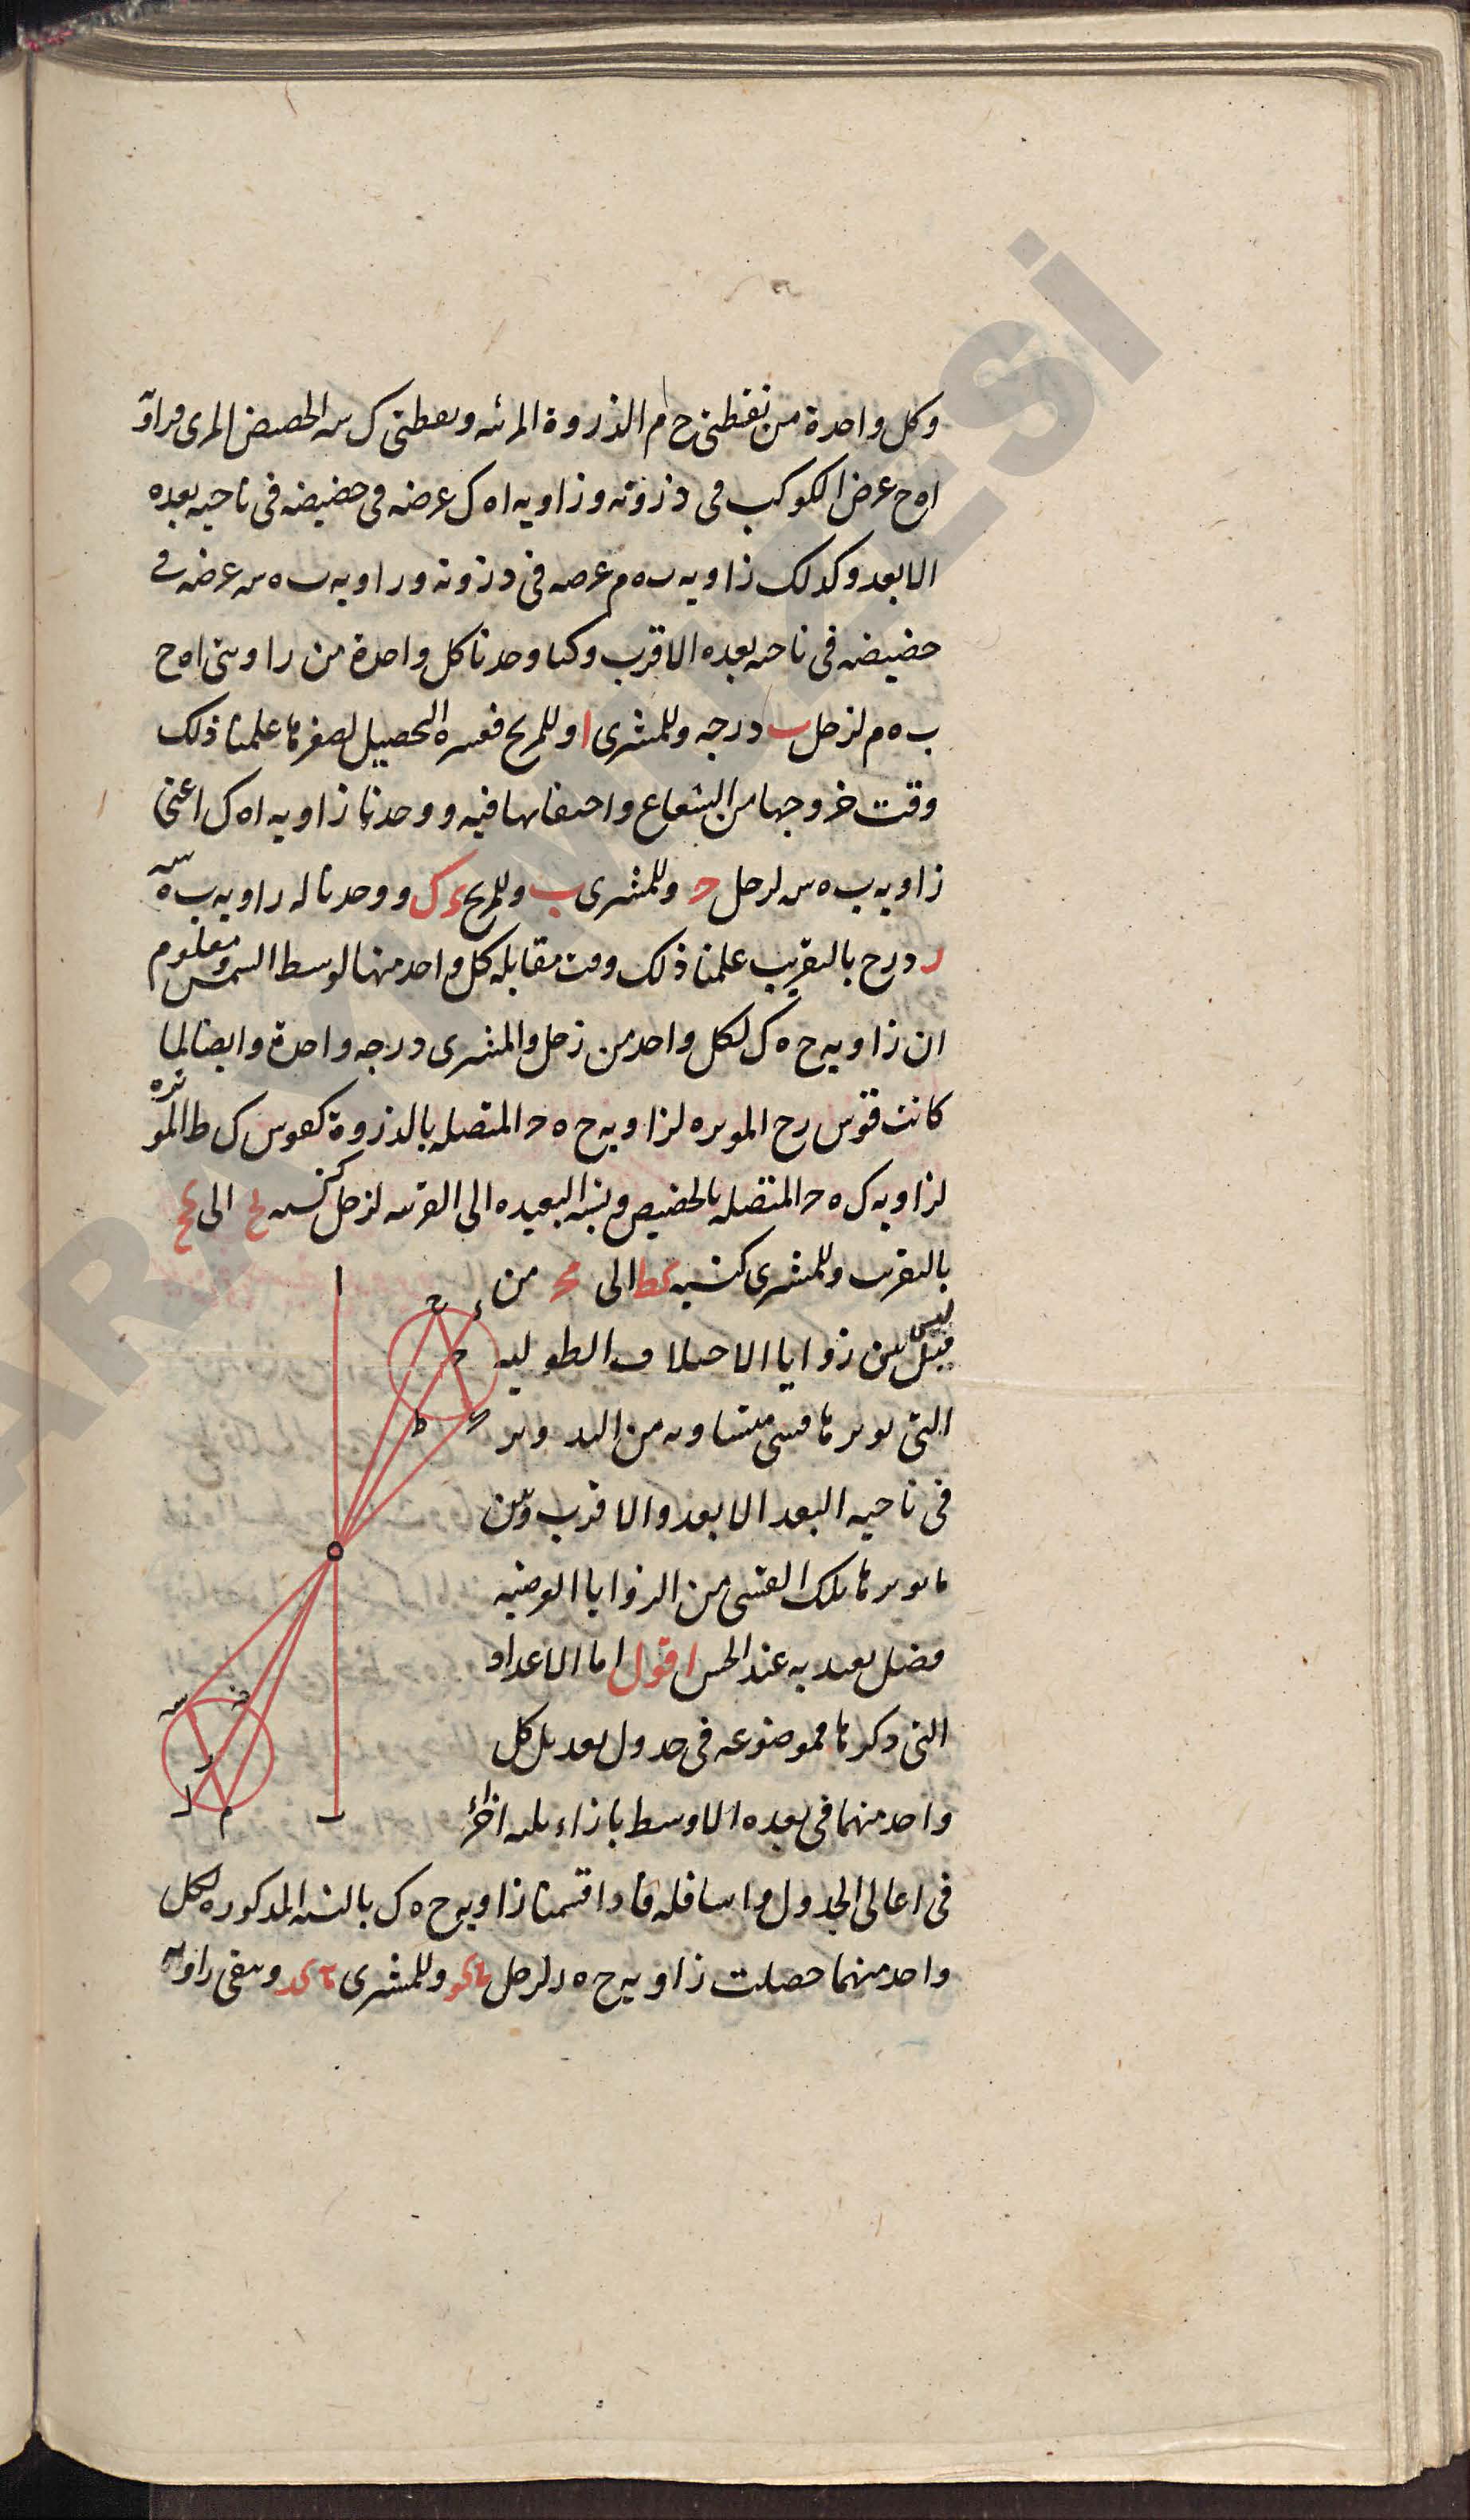 وكل واحدة من نقطتى ح م الذروة المرئه ونعطتى ك س الحضيض المرى فزاوية
اه ح عرض الكوكب فى ذروته وزاويه اه ك عرضه فى حضيضه فى ناحيه بعده
الابعد وكذلك زاويه ب ه م عرضه فى دزوته وزاويه ب ه س عرضه فى
حضيضه فى ناحيه بعده الاقرب وكنا وحدنا كل واحدة من زاويتى اه ح
ب ه م لزحل ب درجه وللمشترى ا وللمريخ فعسرة التحصيل لصغرها علمنا ذلك
وقت خروجها من الشعاع واختفائها فيه ووجدنا زاويه اه ك اعنى
زاويه ب ه س لزحل ح وللمشترى ب وللمريخ ء ك ووجدنا له زاويه ب ه س
ز درج بالتقريب علمنا ذلك وقت مقابله كل واحد منها لوسط الشمس ومعلوم
ان زاويه ح ه ك لكل واحد من زحل والمشترى درجه واحدة وايضا لما
كانت قوس رح الموتره لزاويه ح ه ح المتصله بالذروة كقوس ك ط الموتره
لزاويه ك ه ح المتصله بالحضيض ونسبه البعيده الى القريبه لزحل كنسبه الى
بالتقريب وللمشترى كنسبه الى من
قبل ليس بين زوايا الاختلاف الطوليه
التى يوترها قسى متساويه من التدوير
فى ناحيه البعد الابعد والاقرب وبين
ما يوترها تلك القسى من الزوايا العرضيه
فضل يعتد به عند الحس اقول اما الاعداد
التى ذكرها فموضوعه فى جدول تعديل كل
واحد منهما فى بعده الاوسط بازاء ثلثه اجزاء
فى اعالى الجدول واسافله فاذا قسمنا زاويه ح ه ك بالنسبه المذكوره لكل
واحد منهما حصلت زاويه ح ه د لزحل وللمشترى وبقى زاويه
ا
ح
ء
ح
ط
ك
ه
س
ن
ر
ل
م
ب